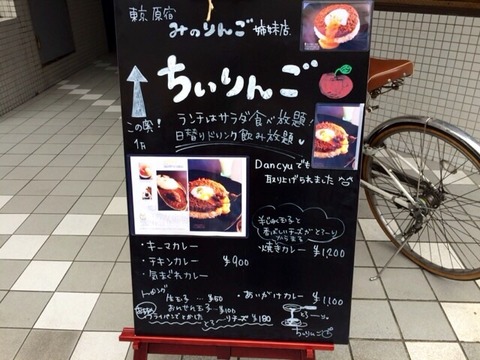 東京原宿
みのりんご姉妹店
ちぃりんご
この奥!
1F
ランチはサラダ食べ放題!
日替りドリンク飲み放題
Dancyuでも
取り上げられました
半じゅく玉子と
香ばしいチーズがと〜り
からまる
焼きカレー ¥1,200
・キーマカレー
・チキンカレー ¥900
・気まぐれカレー
・あいがけカレー ¥1,100
トッピング
生玉子 … ¥50
おんせん玉子 … ¥100
とろ〜りチーズ ¥180
とろ〜り。
ちぃりんご